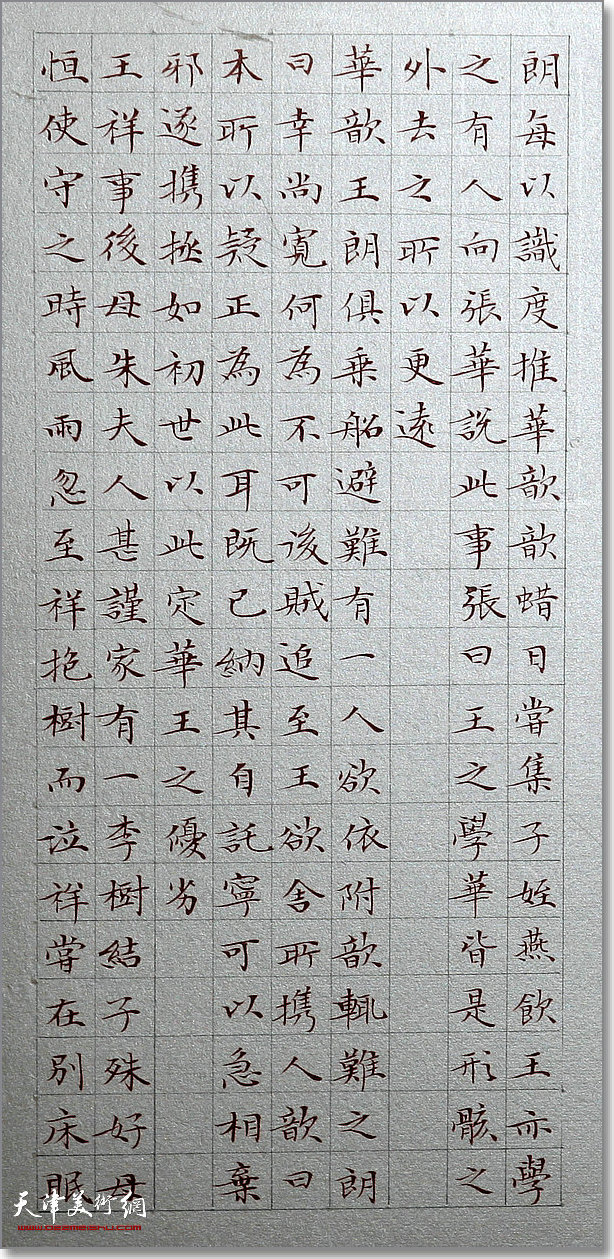 朗每以識度推華歆歆蜡日嘗集子姪燕飲王亦學
之有人向張華說此事張曰王之學華皆是形骸之
外去之所以更遠
華歆王朗俱乗船避難有一人欲依附歆輒難之朗
曰幸尚寬何為不可後賊追至王欲舍所携人歆曰
本所以疑正為此耳既已納其自託寧可以急相棄
邪遂携拯如初世以此定華王之優劣
王祥事後母朱夫人甚謹家有一李樹結子殊好母
恒使守之時風雨忽至祥抱樹而泣祥嘗在別床眠
天津美術網
www.022meishu.com